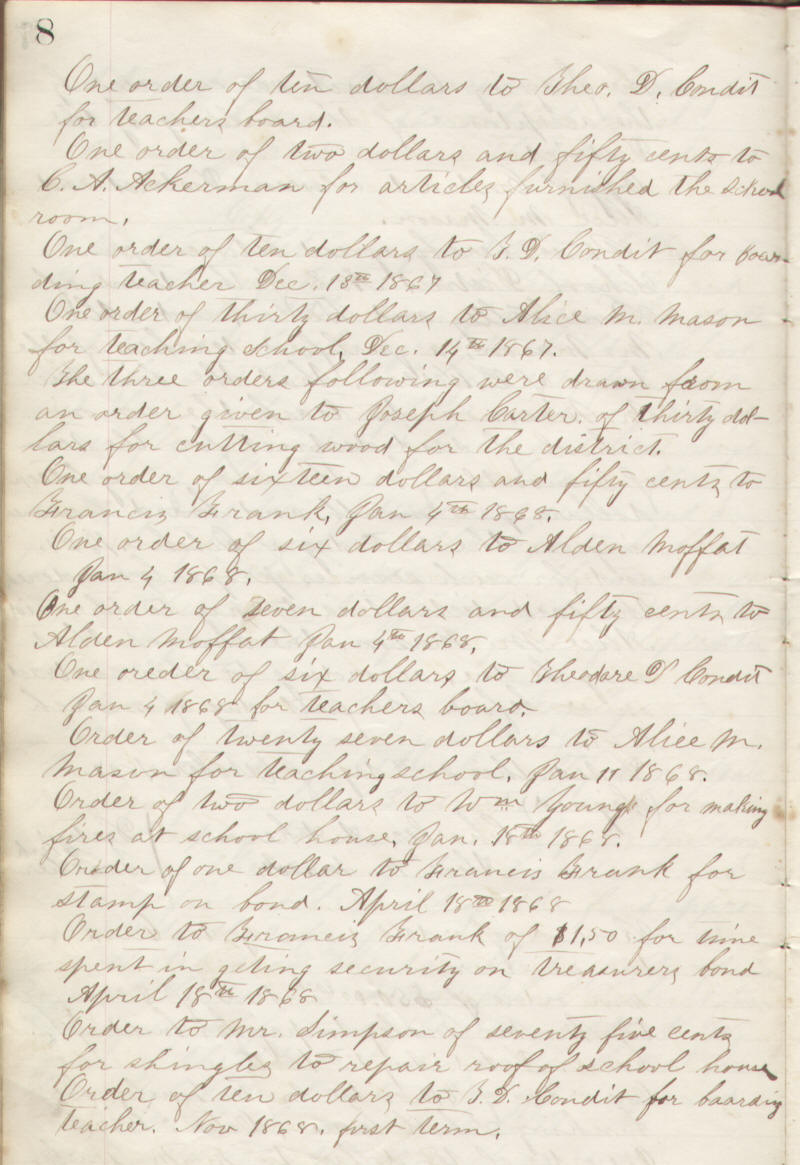 8
One order of ten dollars to Theo. D. Condit
for teachers board.
One order of two dollars and fifty cents to
C. A. Ackerman for articles furnished the school
room.
One order of ten dollars to T. D. Condit for boar-
ding teacher Dec. 18th 1867
One order of thirty dollars to Alice M. Mason
for teaching school, Dec. 14th 1867.
The three orders following were drawn from
an order given to Joseph Carter. of thirty dol-
lars for cutting wood for the district.
One order of sixteen dollars and fifty cents to
Francis Frank, Jan 4th 1868.
One order of six dollars to Alden Moffat
Jan 4 1868.
One order of seven dollars and fifty cents to
Alden Moffat Jan 4th 1868.
One oreder of six dollars to Theodore D Condit
Jan 4 1868 for teachers board.
Order of twenty seven dollars to Alice M.
Mason for teaching school. Jan 11 1868.
Order of two dollars to Wm Young for making
fires at school house, Jan. 18th 1868.
Order of one dollar to Francis Frank for
stamp on bond. April 18th 1868
Order to Francis Frank of $1,50 for time
spent in geting security on treasurers bond
April 18th 1868
Order to Mr. Simpson of seventy five cents
for shingles to repair roof of school house
Order of ten dollars to T. D. Condit for boarding
teacher. Nov 1868. first term.